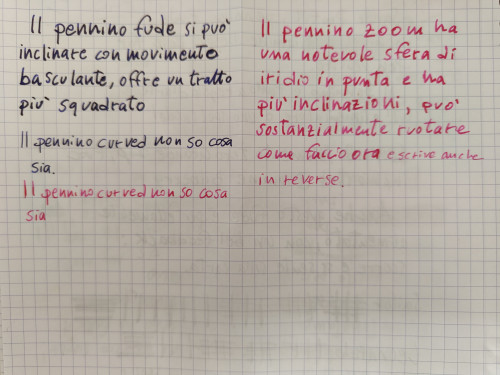 Il pennino fude si può
inclinare con movimento
basculante, offre un tratto
più squadrato
Il pennino curved non so cosa
sia.
Il pennino curved non so cosa
sia
Il pennino zoom ha
una notevole sfera di
iridio in punta e ha
più inclinazioni, può
sostanzialmente ruotare
come faccio ora e scrive anche
in reverse.